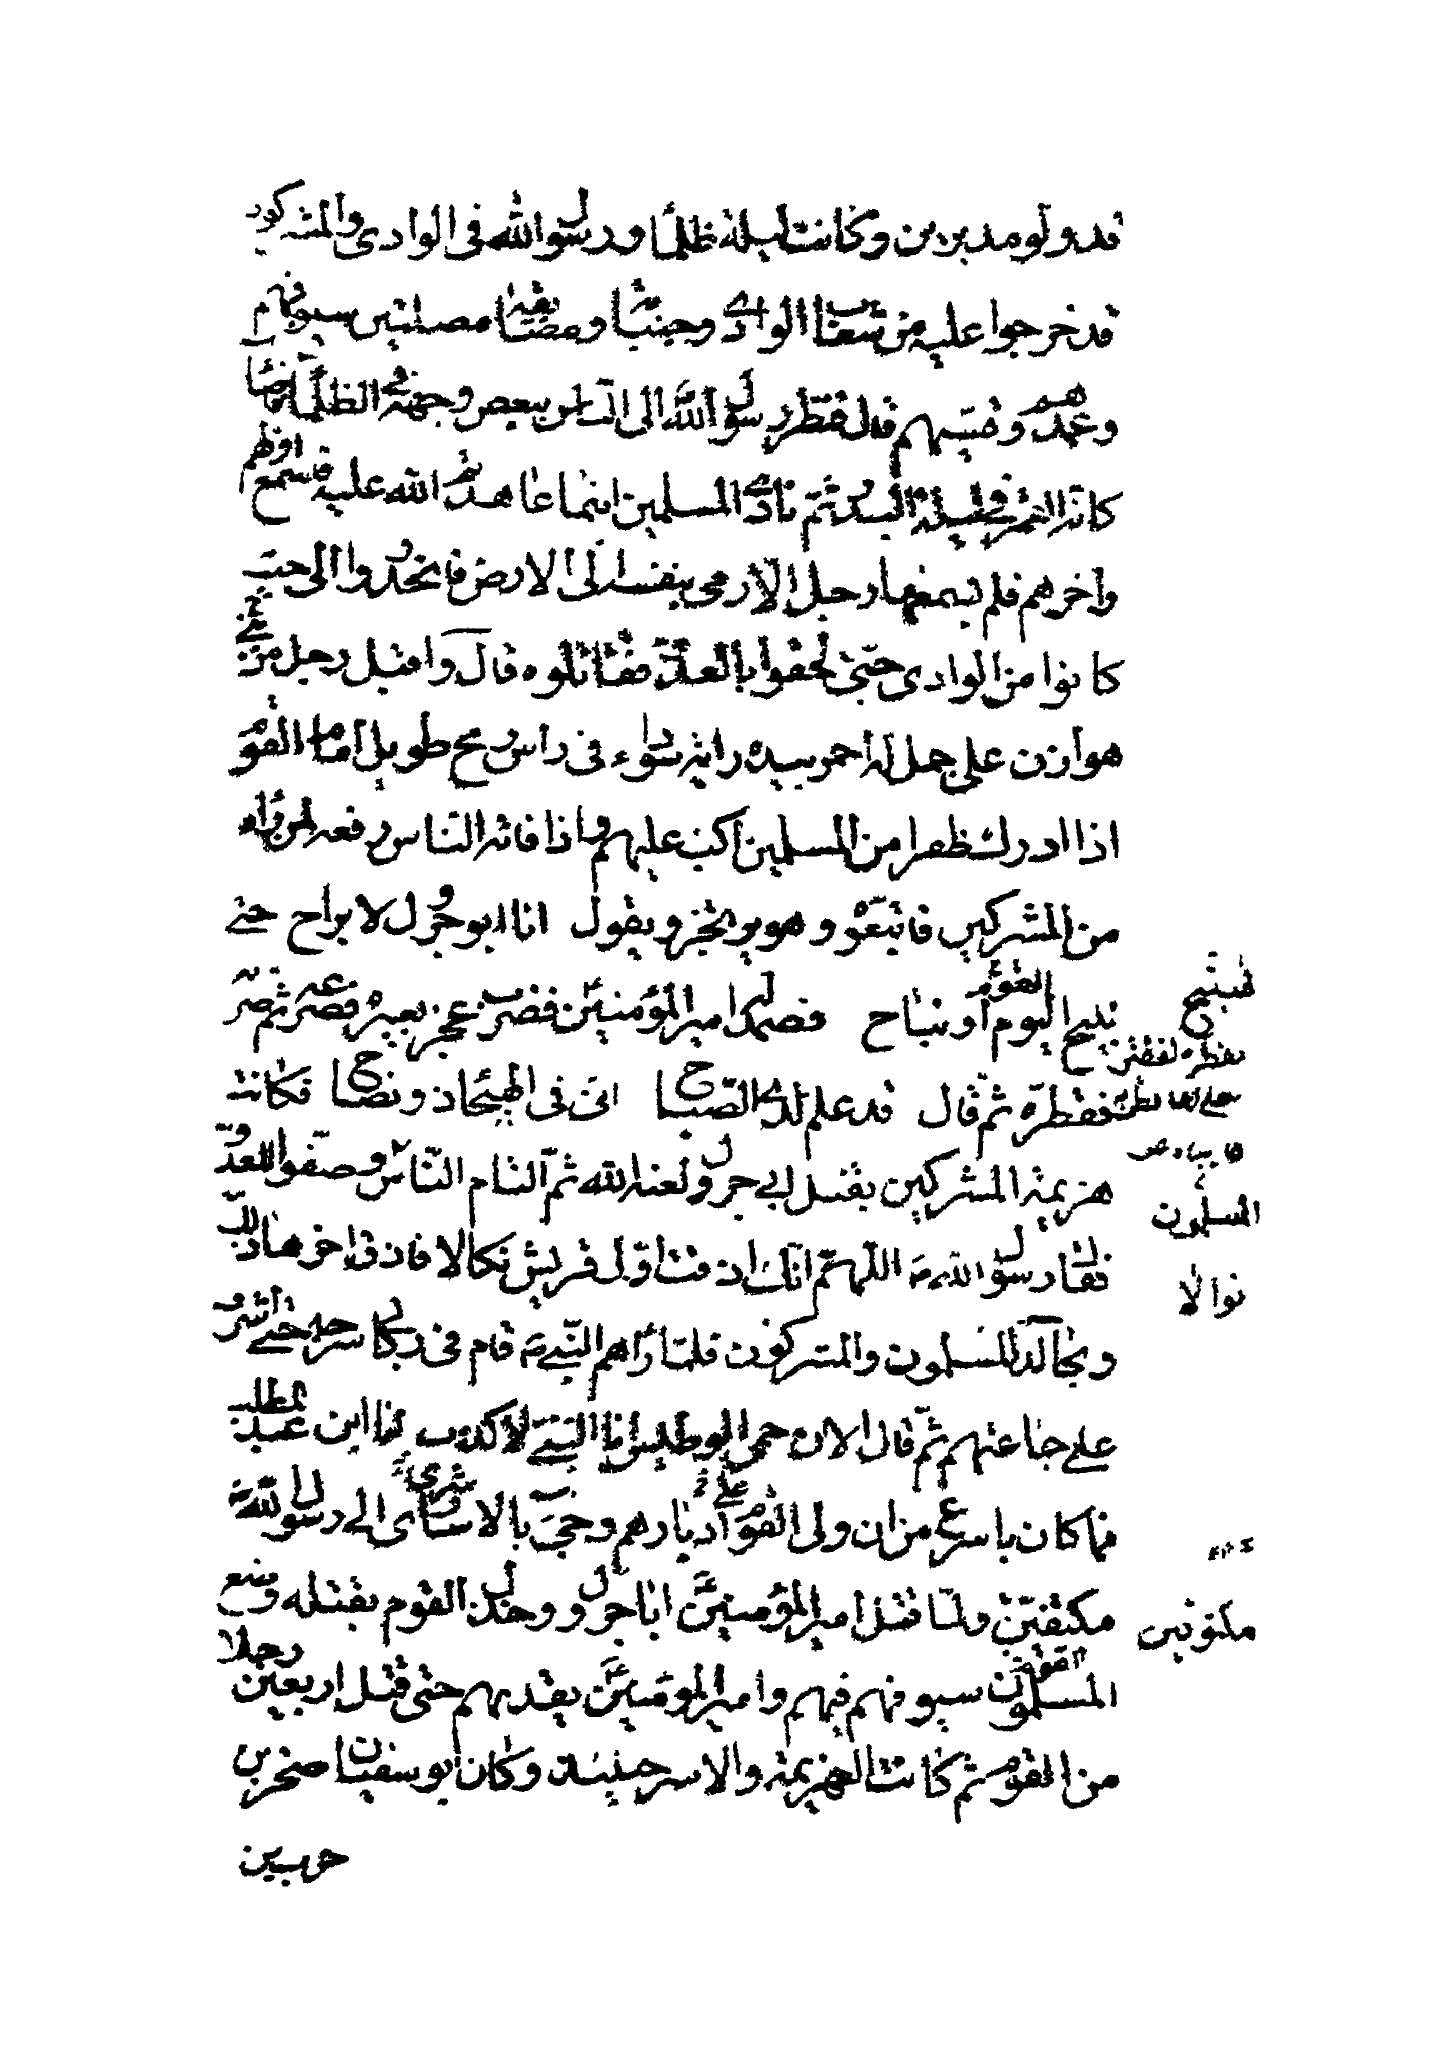 قد ولو مدبرين وكانت ليلة ظلمآء ورسول الله فى الوادى والمشركون
قد خرجوا عليه من شعاب الوادى وجنباته ومضايقه مصلتين سيوفهم
وعمدهم وقسيهم قال فنظر رسول الله الى الناس ببعض وجهه فى الظلمآء فاضاء
كانه القمر فى ليلة البدر ثم نادى المسلمين اينما عاهدتم الله عليه فاسمع اولهم
وآخرهم فلم يسمعها رجل الّا رمى بنفسه الى الارض فانحدروا الى حيث
كانوا من الوادى حتى لحقوا بالعدو فقاتلوه قال واقبل رجل من
هوازن على جمل له احمر بيده راية سوداء فى راس رمح طويل امام القوم
اذا ادرك ظفرا من المسلمين اكب عليهم واذا فاته الناس رفعه لمن ورآه
من المشركين فاتبعوه وهو يرتجز ويقول انا ابو جرول لا براح حتى
نبيح اليوم او نباح فصمد له امير المؤمنين فضرب عجز بعيره فصرعه ثم ضربه
فقطره ثم قال قد علم لدى الصباح انى فى الهيجاء ذو نصاح فكانت
هزيمة المشركين بقتل ابى جرول لعنه الله ثم التام الناس وصفوا للعدو
فقال رسول الله اللهم انك اذقت اول قريش نكالا فاذق اخرها
وتجالد المسلمون والمشركون فلما رآهم النبى قام فى ركابى سرجه حتى اشرف
على جماعتهم ثم قال الان حمى الوطيس انا النبى لا كذب انا ابن عبد المطلب
فما كان باسرع من ان ولى القوم على ادبارهم وجئ بالاسارى الى رسول الله
مكتفين ولما قتل امير المؤمنين ابا جرول وخذل القوم بقتله وضع
المسلمون سيوفهم فيهم وامير المؤمنين يقدمهم حتى قتل اربعين رجلا
من القوم ثم كانت الهزيمة والاسر حينئذ وكان ابو سفيان صخر بن
حرب بن
المسلمون
نوالا
مكتوفين